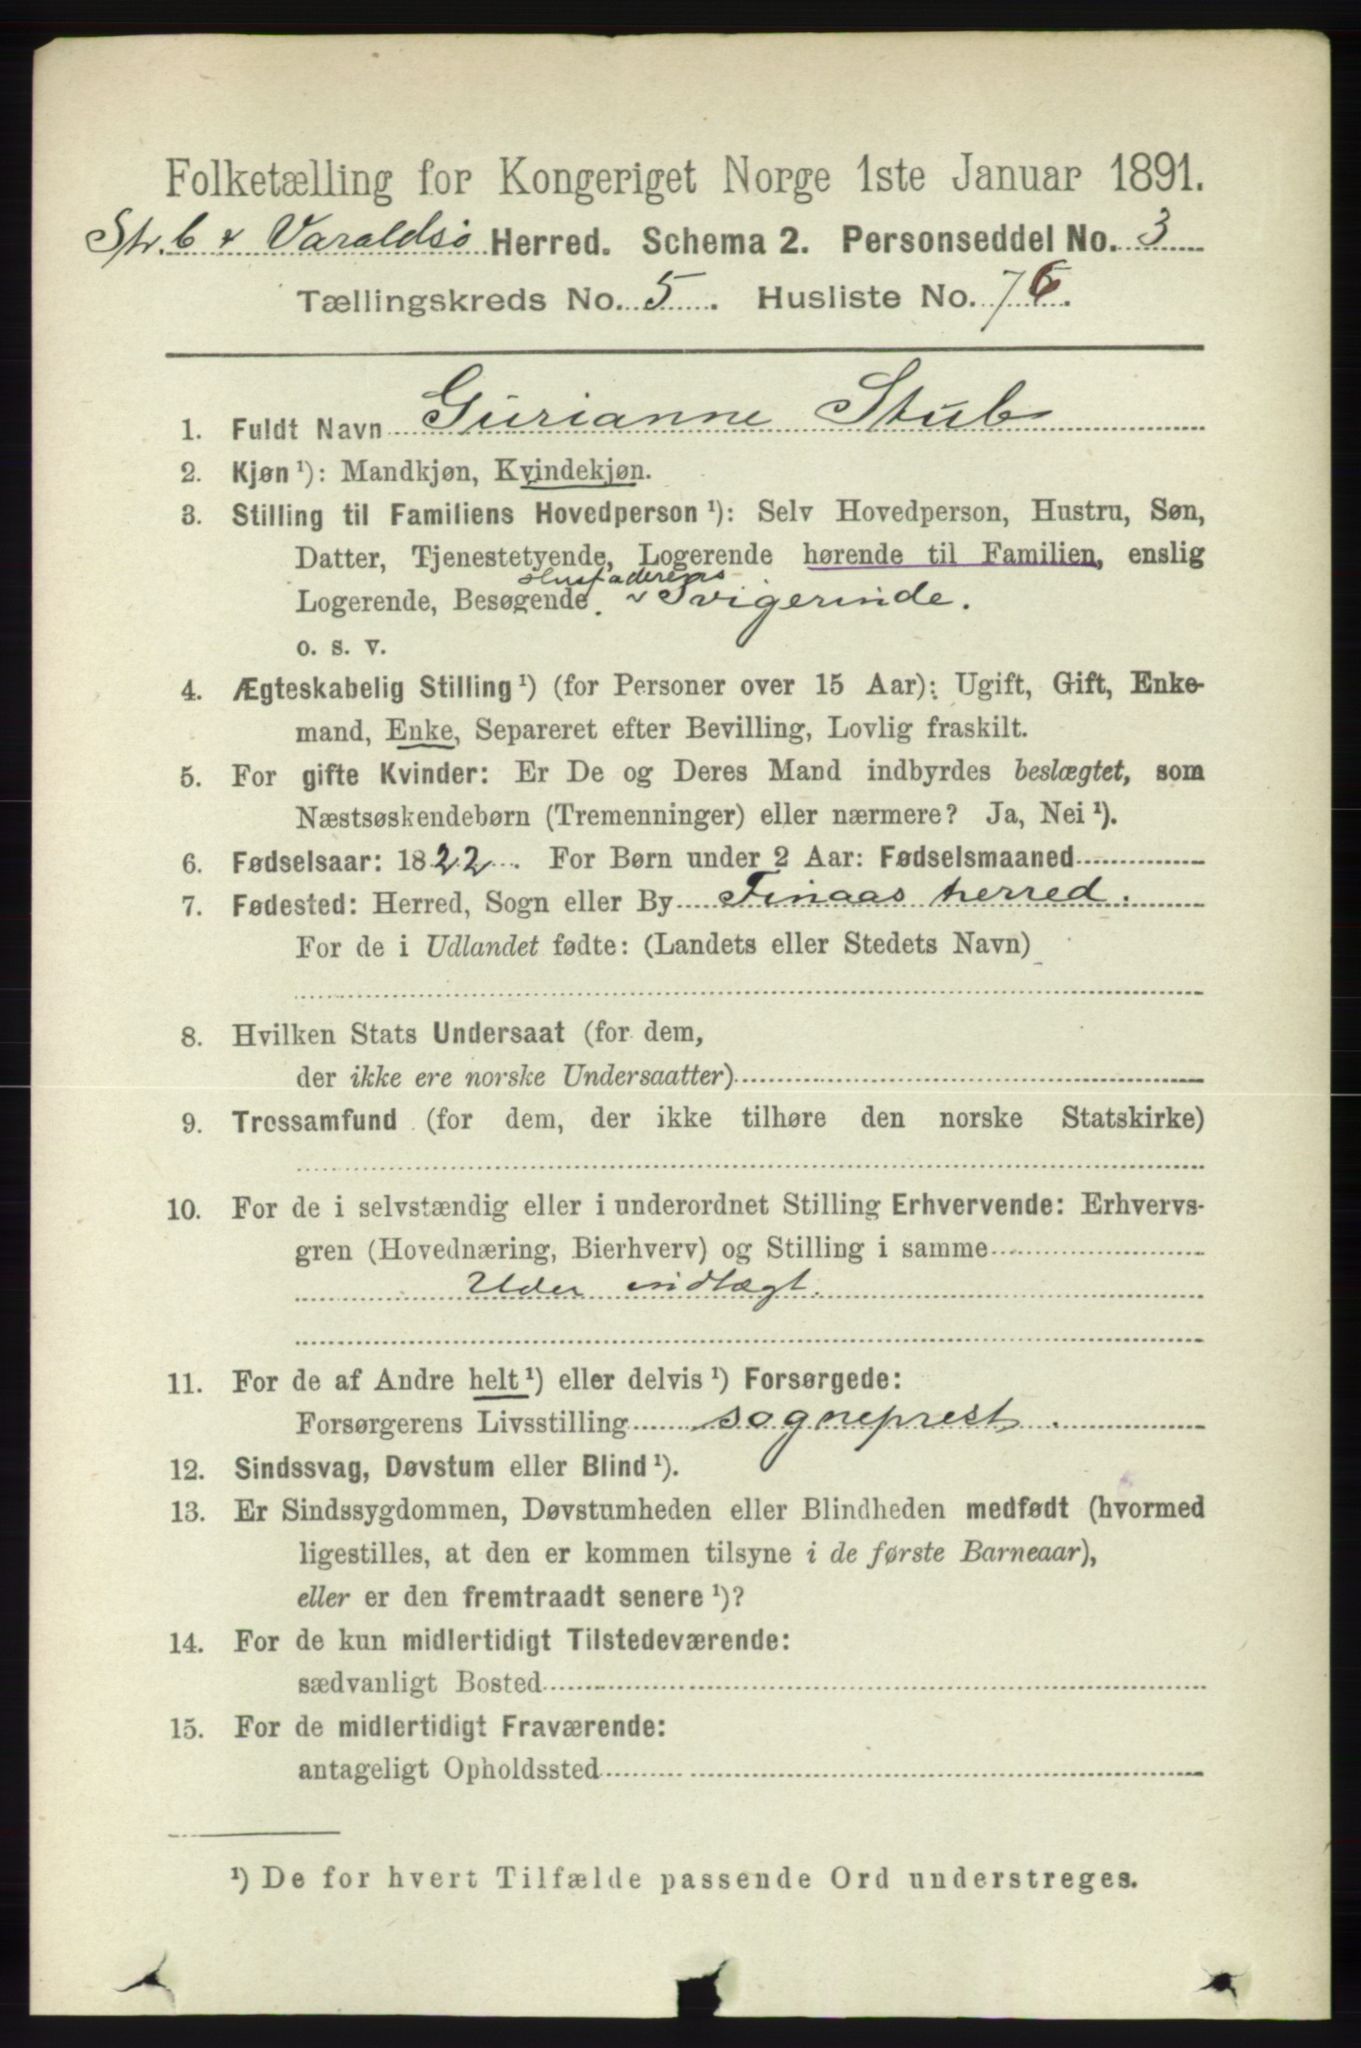 Folketælling for Kongeriget Norge 1ste Januar 1891.
Varaldsø Herred. Schema 2. Personseddel No. 3
Tællingskreds No. 5. Husliste No. 76.
1. Fuldt Navn Gurianne Stub
2. Kjøn ¹): Mandkjøn, Kvindekjøn.
3. Stilling til Familiens Hovedperson ¹): Selv Hovedperson, Hustru, Søn,
Datter, Tjenestetyende, Logerende hørende til Familien, enslig
Husfaderens
Logerende, Besøgende. Svigerinde.
o. s. v.
4. Ægteskabelig Stilling ¹) (for Personer over 15 Aar): Ugift, Gift, Enke-
mand, Enke, Separeret efter Bevilling, Lovlig fraskilt.
5. For gifte Kvinder: Er De og Deres Mand indbyrdes beslægtet, som
Næstsøskendebørn (Tremenninger) eller nærmere? Ja, Nei ¹).
6. Fødselsaar: 1822. For Børn under 2 Aar: Fødselsmaaned
7. Fødested: Herred, Sogn eller By Finaas herred.
For de i Udlandet fødte: (Landets eller Stedets Navn)
8. Hvilken Stats Undersaat (for dem,
der ikke ere norske Undersaatter)
9. Trossamfund (for dem, der ikke tilhøre den norske Statskirke)
10. For de i selvstændig eller i underordnet Stilling Erhvervende: Erhvervs-
gren (Hovednæring, Bierhverv) og Stilling i samme
Uden indtægt.
11. For de af Andre helt ¹) eller delvis ¹) Forsørgede:
Forsørgerens Livsstilling sogneprest.
12. Sindssvag, Døvstum eller Blind ¹).
13. Er Sindssygdommen, Døvstumheden eller Blindheden medfødt (hvormed
ligestilles, at den er kommen tilsyne i de første Barneaar),
eller er den fremtraadt senere ¹)?
14. For de kun midlertidigt Tilstedeværende:
sædvanligt Bosted
15. For de midlertidigt Fraværende:
antageligt Opholdssted
¹) De for hvert Tilfælde passende Ord understreges.